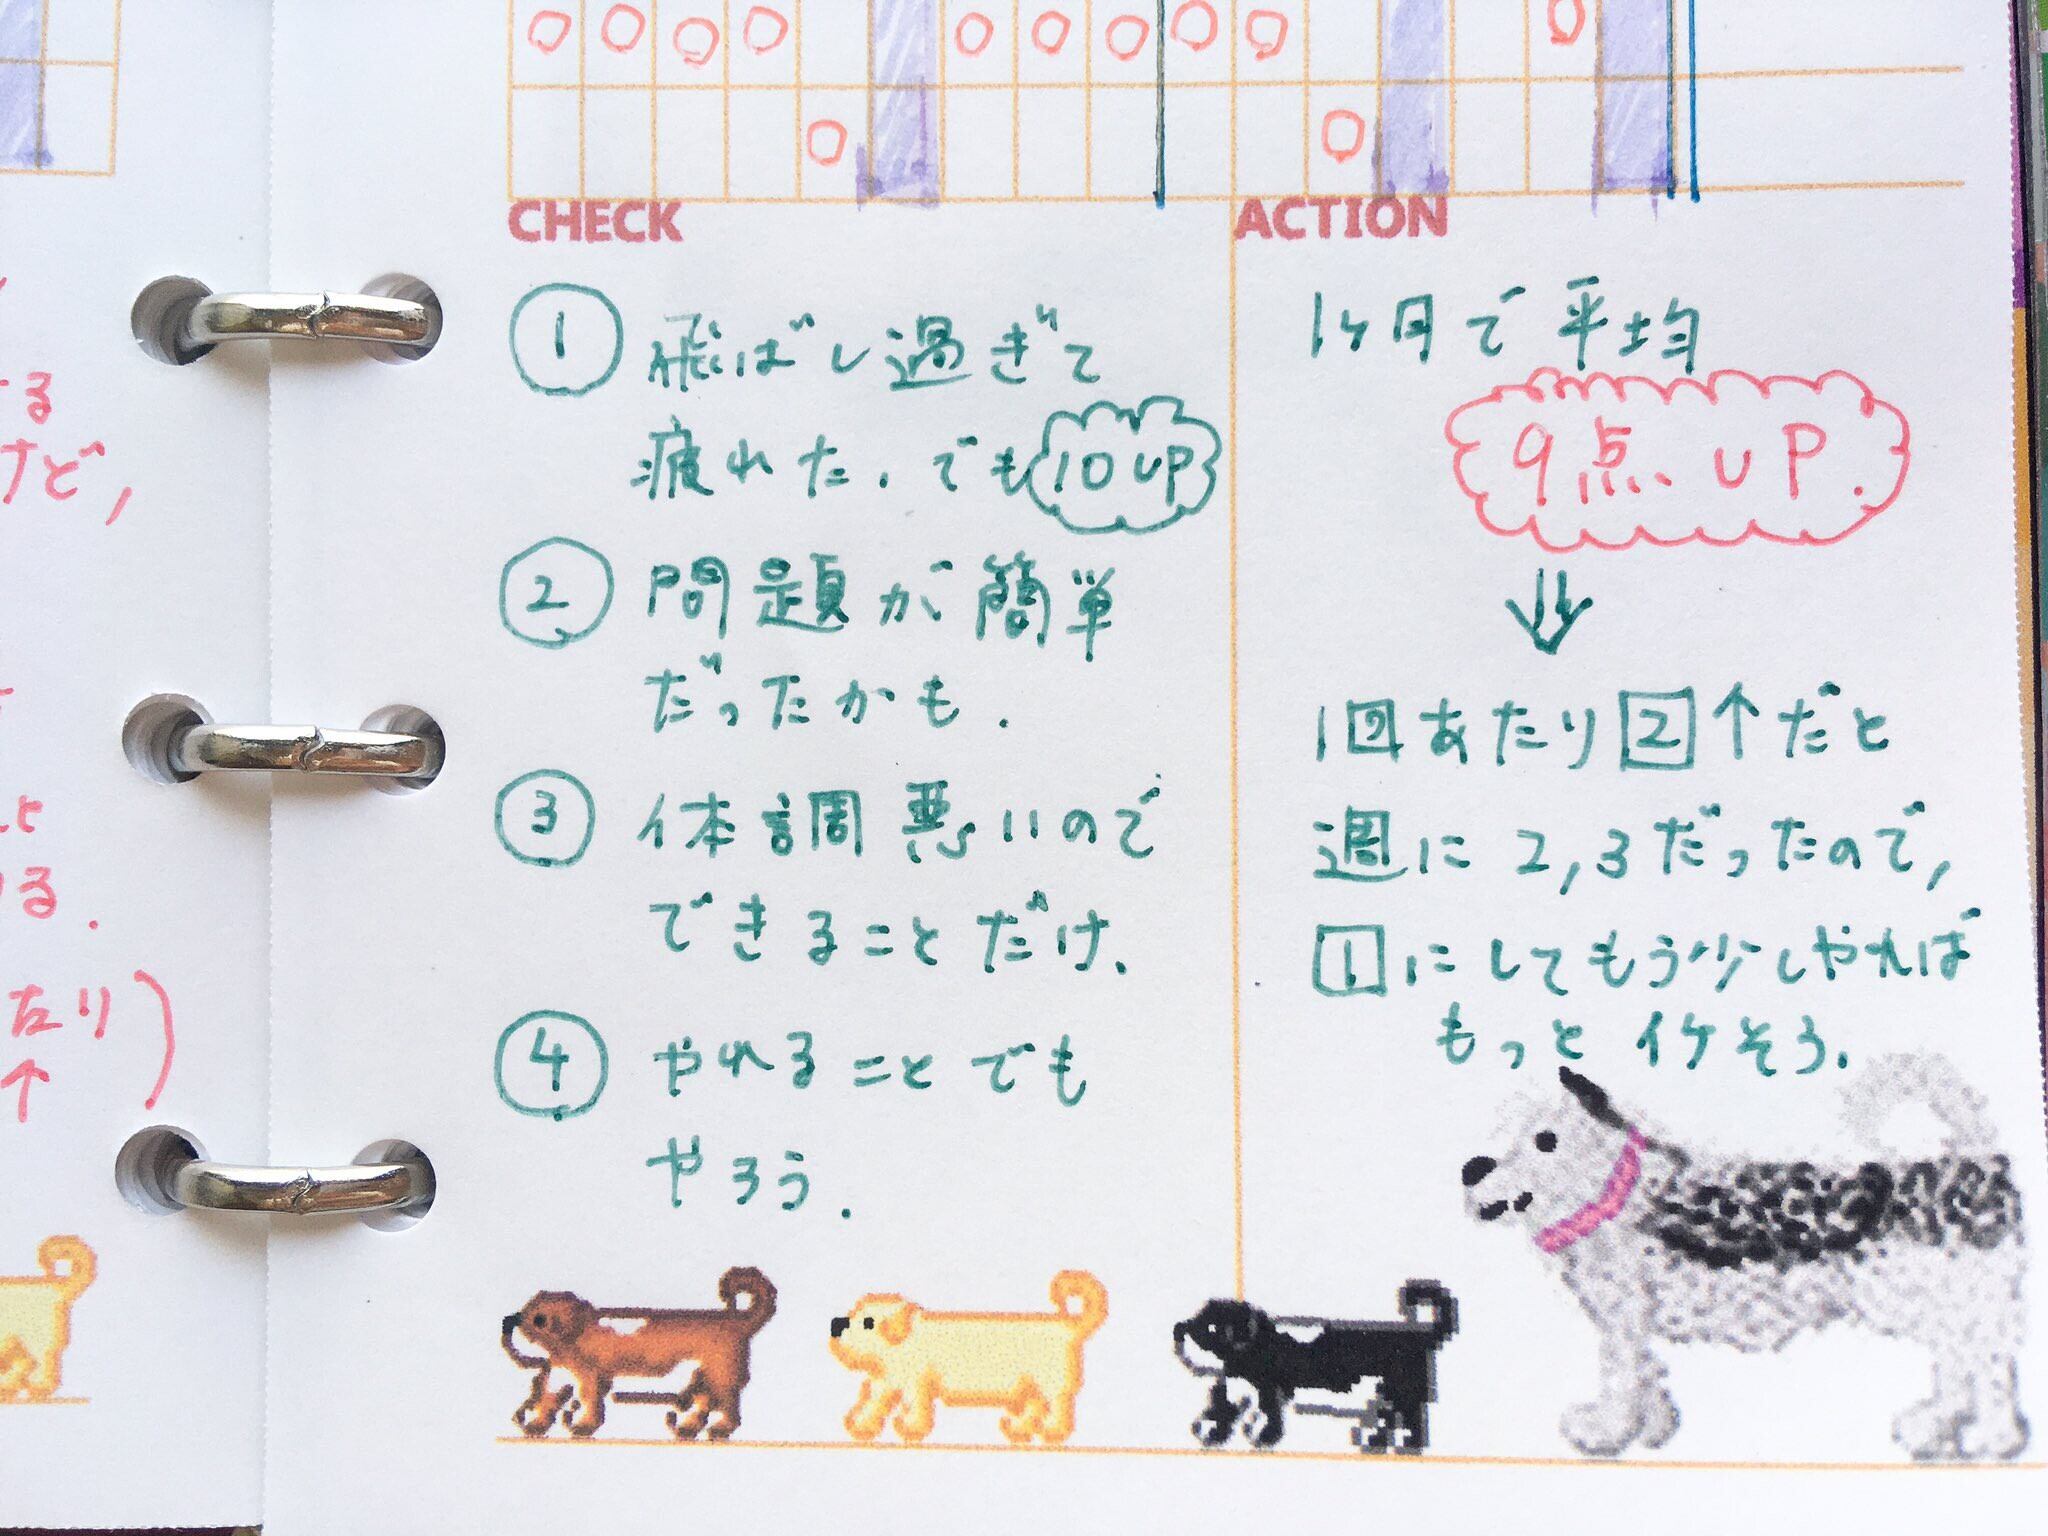 る
けど,
と
る.
たり)
↑
CHECK
① 飛ばし過ぎて
疲れた. でも 10 UP
② 問題が簡単
だったかも.
③ 体調悪いので
できることだけ.
④ やれることでも
やろう.
ACTION
1ヶ月で平均
9点 UP.
⇓
1回あたり 2 ↑だと
週に 2,3だったので,
1 にしてもう少しやれば
もっとイケそう.